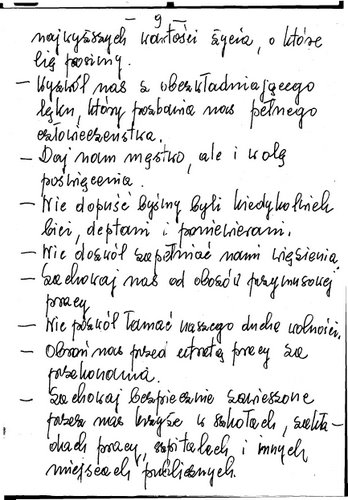 - 9 -
najwyższych wartości życia, o które
Cię prosimy.
- Wyzwól nas z obezwładniającego
lęku, który pozbawia nas pełnego
człowieczeństwa.
- Daj nam męstwo, ale i wolę
poświęcenia.
- Nie dopuść byśmy byli kiedykolwiek
bici, deptani i poniewierani.
- Nie dozwól zapełniać nami więzienia.
- Zachowaj nas od obozów przymusowej
pracy
- Nie pozwól łamać naszego ducha wolności.
- Obroń nas przed utratą pracy za
przekonania.
- Zachowaj bezpiecznie zawieszone
przez nas krzyże w szkołach, zakła-
dach pracy, szpitalach i innych
miejscach publicznych.